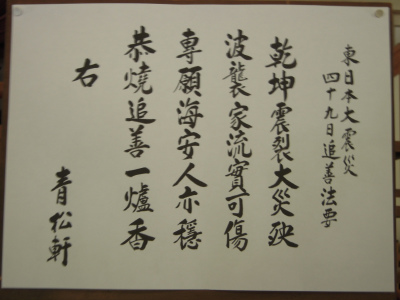 東日本大震災
四十九日追善法要
乾坤震裂大災殃
波襲家流實可傷
専願海安人亦穏
恭焼追善一爐香
右
青松軒